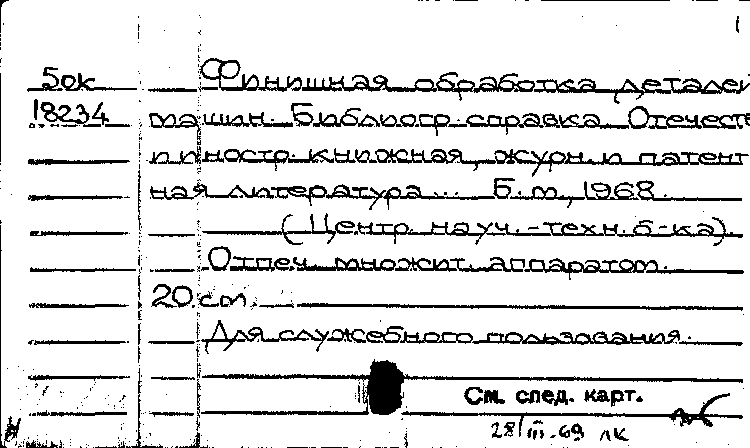 1
50к Финишная обработка деталей
18234 машин. Библиогр. справка. Отечеств.
и иностр. книжная, журн. и патент-
ная литература... Б. м., 1968.
(Центр. науч.-техн. б-ка).
Отпеч. множит. аппаратом.
20 см.
Для служебного пользования.
См. след. карт.
28/III-69 ЛК